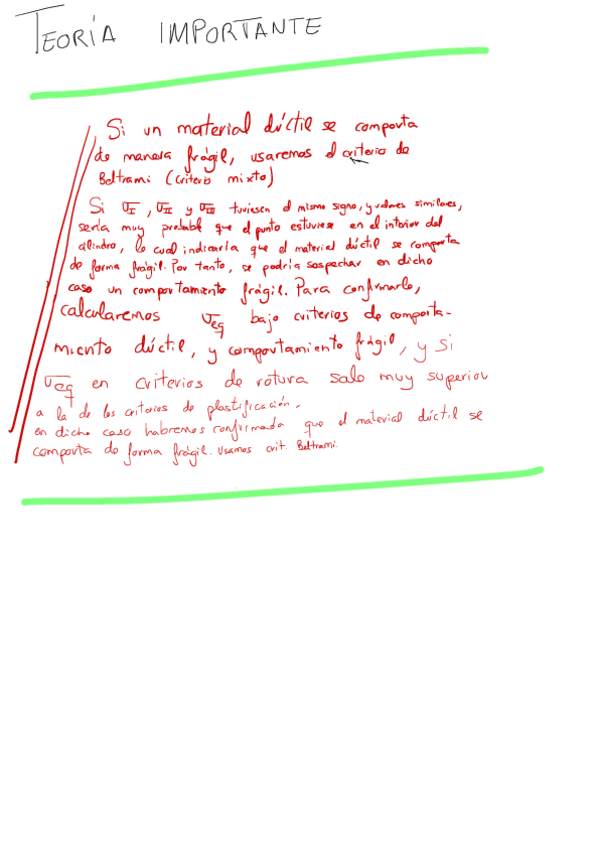 TEORÍA IMPORTANTE
Si un material dúctil se comporta
de manera frágil, usaremos el criterio de
Beltrami (criterio mixto)
Si σI, σII y σIII tuviesen el mismo signo, y valores similares,
sería muy probable que el punto estuviese en el interior del
cilindro, lo cual indicaría que el material dúctil se comporta
de forma frágil. Por tanto, se podría sospechar en dicho
caso un comportamiento frágil. Para confirmarlo,
calcularemos σeq bajo criterios de comporta-
miento dúctil, y comportamiento frágil, y si
σeq en criterios de rotura sale muy superior
a la de los criterios de plastificación.
en dicho caso habremos confirmado que el material dúctil se
comporta de forma frágil. Usamos crit. Beltrami.